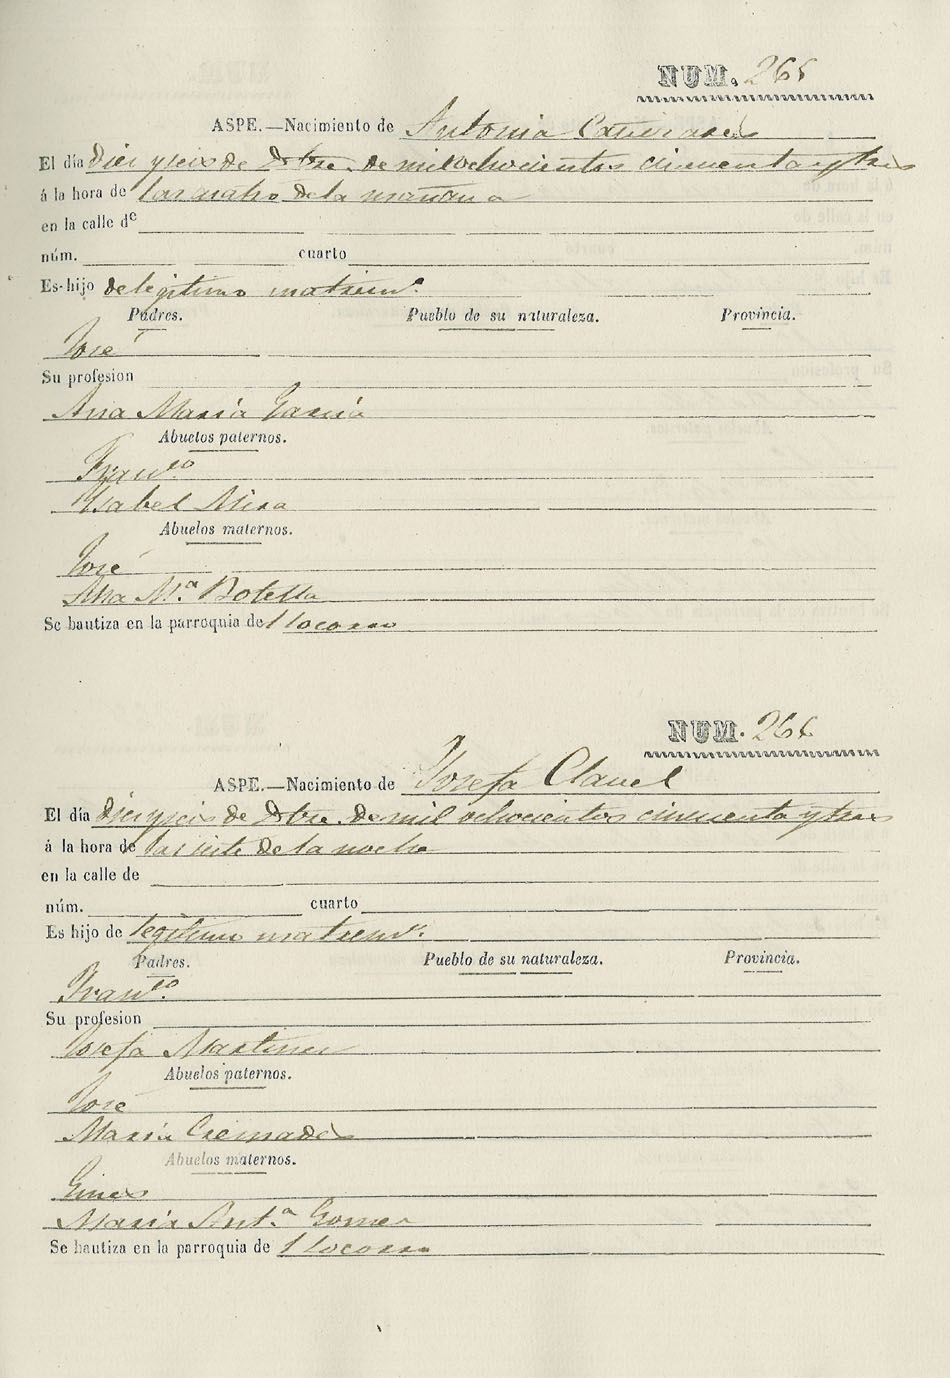 NUM. 265
ASPE.—Nacimiento de Antonia Cañizares
El día diez y seis de Dbre. de mil ochocientos cincuenta y tres
á la hora de las cuatro de la mañana
en la calle de
núm. cuarto
Es hijo de legitimo matrim.º
Padres. Pueblo de su naturaleza. Provincia.
José
Su profesion
Ana Maria Garcia
Abuelos paternos.
Fran.co
Ysabel Mira
Abuelos maternos.
José
Ana M.ª Botella
Se bautiza en la parroquia del Socorro
NUM. 266
ASPE.—Nacimiento de Josefa Clavel
El día diez y seis de Dbre. de mil ochocientos cincuenta y tres
á la hora de las siete de la noche
en la calle de
núm. cuarto
Es hijo de legitimo matrim.º
Padres. Pueblo de su naturaleza. Provincia.
Fran.co
Su profesion
Josefa Martinez
Abuelos paternos.
José
Maria Cremades
Abuelos maternos.
Gines
Maria Ant.ª Gomez
Se bautiza en la parroquia de l Socorro